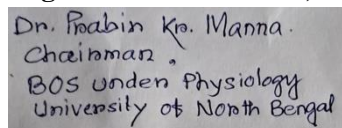 Dr. Prabin Kr. Manna.
Chairman,
BOS under Physiology
University of North Bengal